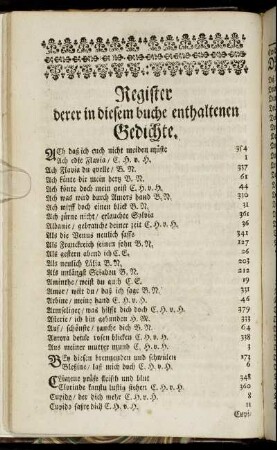 Register
derer in diesem buche enthaltenen
Gedichte.
ACh daß ich euch nicht meiden müste 314
Ach edle Flavia/ C. H. v. H. 1
Ach Flavia du quelle/ B. N. 337
Ach könte dir mein hertz B. N. 61
Ach könte doch mein geist C. H. v. H. 44
Ach was ward durch Amors hand B. N. 310
Ach wirff doch einen blick B. N. 31
Ach zürne nicht/ erlauchte Sylvia 361
Albanie/ gebrauche deiner zeit C. H. v. H. 36
Als die Venus neulich sasse 341
Als Franckreich seinen sohn B. N. 127
Als gestern abend ich C. E. 26
Als neulich Lisia B. N. 203
Als unlängst Seladon B. N. 212
Aminthe/ weist du C. E. 19
Amor/ wilt du/ daß ich sage B. N. 331
Arbine/ meinz hand C. H. v. H. 46
Armseliger/ was hilfft dich doch C. H. v. H. 379
Asterie/ ich bin gebunden H. M. 333
Auf/ schönste/ gönne dich B. N. 64
Aurora deine rosen blicken C. H. v. H. 338
Aus meiner mutter mund C. H. v. H. 3
BEy diesen brennenden und schwülen 173
Bleßine/ laß mich doch C. H. v. H. 6
fleisch und blut 348
Clorinde stehen C. H. v. H. 360
Cupido/ der dich mehr C. H. v. H. 8
Cupido sagte dieß C. H. v. H. 11
Cupi-